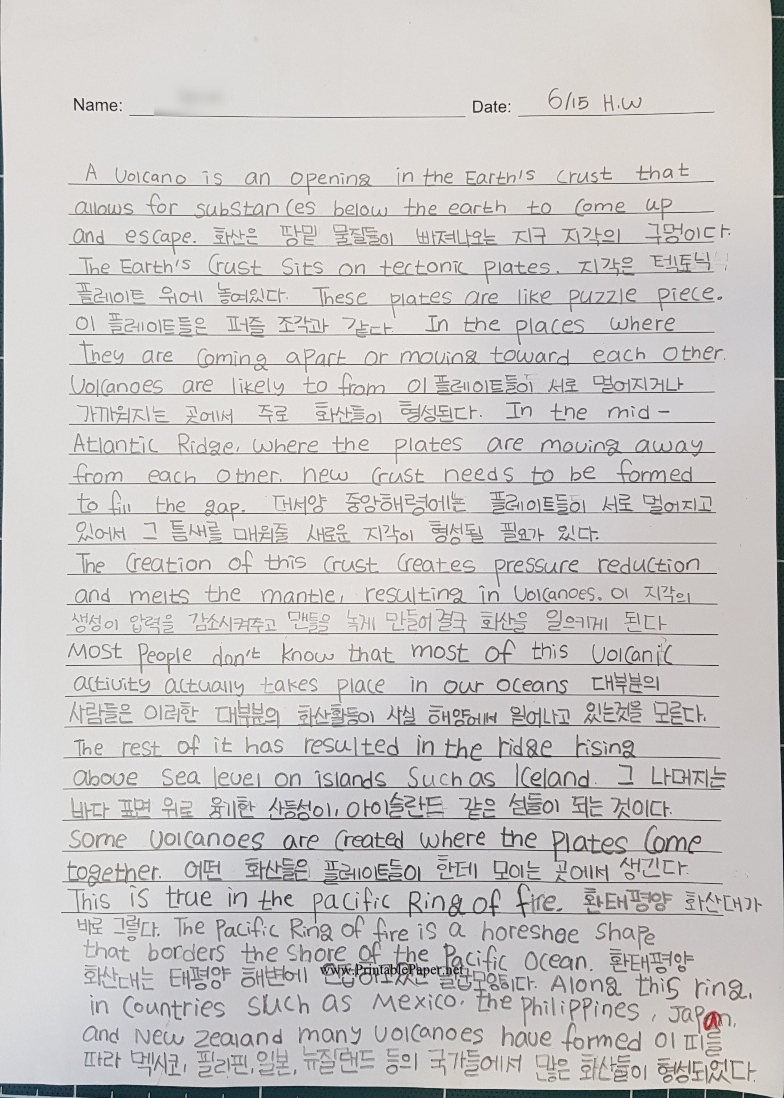 Name:
Date: 6/15 H.W
A Volcano is an opening in the Earth's crust that
allows for substances below the earth to come up
and escape. 화산은 땅밑 물질들이 빠져나오는 지구 지각의 구멍이다.
The Earth's Crust sits on tectonic plates. 지각은 텍토닉
플레이트 위에 놓여있다. These plates are like puzzle piece.
이 플레이트들은 퍼즐 조각과 같다. In the places where
they are coming apart or moving toward each other.
Volcanoes are likely to from 이 플레이트들이 서로 멀어지거나
가까워지는 곳에서 주로 화산들이 형성된다. In the mid-
Atlantic Ridge, where the plates are moving away
from each other. new crust needs to be formed
to fill the gap. 대서양 중앙해령에는 플레이트들이 서로 멀어지고
있어서 그 틈새를 매워줄 새로운 지각이 형성될 필요가 있다.
The Creation of this crust creates pressure reduction
and melts the mantle, resulting in Volcanoes. 이 지각의
생성이 압력을 감소시켜주고 맨틀을 녹게 만들어 결국 화산을 일으키게 된다
Most People don't know that most of this Volcanic
activity actually takes place in our oceans 대부분의
사람들은 이러한 대부분의 화산활동이 사실 해양에서 일어나고 있는것을 모른다.
The rest of it has resulted in the ridge rising
above sea level on islands such as Iceland. 그 나머지는
바다 표면 위로 융기한 산등성이, 아이슬란드 같은 섬들이 되는 것이다.
Some Volcanoes are created where the plates come
together. 어떤 화산들은 플레이트들이 한데 모이는 곳에서 생긴다.
This is true in the pacific Ring of fire. 환태평양 화산대가
바로 그렇다. The Pacific Ring of fire is a horeshoe shape
that borders the shore of the Pacific Ocean. 환태평양
화산대는 태평양 해변에 말굽모양이다. Along this ring,
www.PrintablePaper.net
in Countries such as Mexico, the philippines, Japan,
and New zealand many Volcanoes have formed 이 띠를
따라 멕시코, 필리핀, 일본, 뉴질랜드 등의 국가들에서 많은 화산들이 형성되었다.